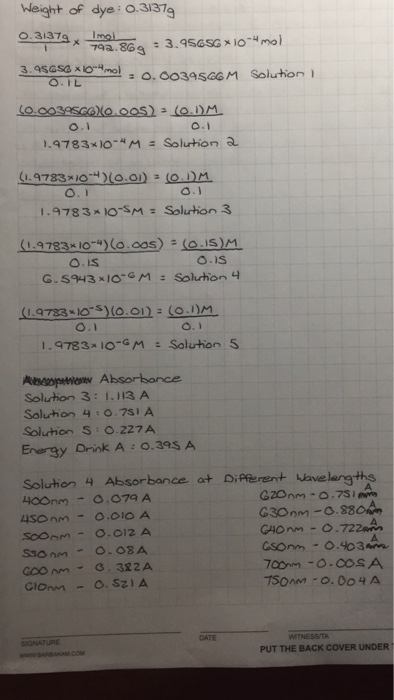 Weight of dye: 0.3137g
0.3137g / 1 x 1mol / 792.86g = 3.95656 x 10⁻⁴ mol
3.95656 x 10⁻⁴ mol / 0.1L = 0.0039566 M Solution 1
(0.0039566)(0.005) / 0.1 = (0.1)M / 0.1
1.9783x10⁻⁴ M = Solution 2
(1.9783x10⁻⁴)(0.01) / 0.1 = (0.1)M / 0.1
1.9783x10⁻⁵ M = Solution 3
(1.9783x10⁻⁴)(0.005) / 0.15 = (0.15)M / 0.15
6.5943x10⁻⁶ M = Solution 4
(1.9783x10⁻⁵)(0.01) / 0.1 = (0.1)M / 0.1
1.9783x10⁻⁶ M = Solution 5
Absorbance
Solution 3: 1.113 A
Solution 4: 0.751 A
Solution 5: 0.227 A
Energy Drink A: 0.395 A
Solution 4 Absorbance at Different Wavelengths
400nm - 0.079 A
450nm - 0.010 A
500nm - 0.012 A
550nm - 0.08 A
600nm - 0.322 A
610nm - 0.521 A
620nm - 0.751 A
630nm - 0.880 A
640nm - 0.722 A
650nm - 0.403 A
700nm - 0.005 A
750nm - 0.004 A
SIGNATURE DATE WITNESS/TA
PUT THE BACK COVER UNDER